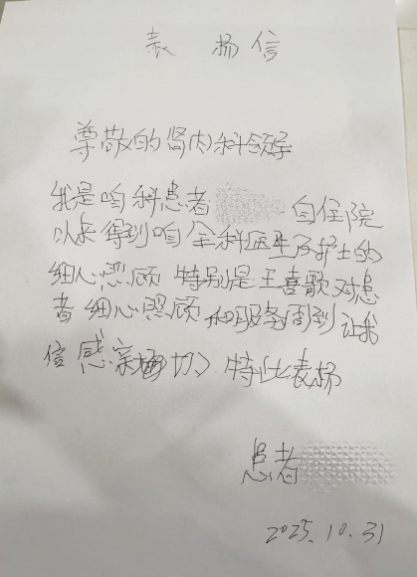 表扬信
尊敬的肾内科领导
我是咱科患者 自住院
以来得到咱全科医生及护士的
细心照顾 特别是王喜歌对患
者细心照顾和服务周到 让我
感亲切 特此表扬
患者
2025.10.31